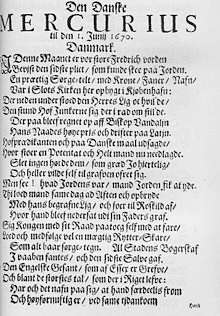 Den Danske
MERCURIUS
til den 1. Junij 1670.
Danmark.
I Denne Maanet er vor store Fredrich vorden
Bevist den sidste pligt, som kunde skee paa Jorden.
En præctig Sørge-telt, med Krone, Faner, Nafn,
Var i Slots Kirken her opbygt i Kiøbenhafn;
Der neden under stood den Herres Lig at hvile,
Den stund Hof Junkerne sig der i rad om stilde.
Der paa bleef regnet op aff Bisp Vandalin
Hans Naades høye priis och drifter paa Latin.
Hofprædicanten och paa Danske maal udsagde,
Hvor stoor en Potentat och Helt mand nu nedlagde.
Slet ingen høyde der, som grad jo hiertelig,
Och heller vilde self til grafven ofret sig.
Men see! hvad Jordens var, mand Jorden fik at yde.
Thi lood mand samme dag ad Aften och opbryde
Med hans begrafne Lig, och foer til Roskild af,
Hvor hand bleef nedersat ud sin Faders graf.
Sig Kongen med sit Raad paatoeg self med at fare,
Leed och medfølge od en mægtig Rytter-Skare,
Som alt baar sørge-tegn. Al Stadens Borgerskaf
I vaaben fantes, och den sidste Salve gaf.
Den Engelske Gesant, som af Essex er Grefve,
Och blant de største tal, som der i Riget lefve,
Har och det nafn paa sig, at hand særdeelis from
Och høyfornuftig er, ved samme tidankom